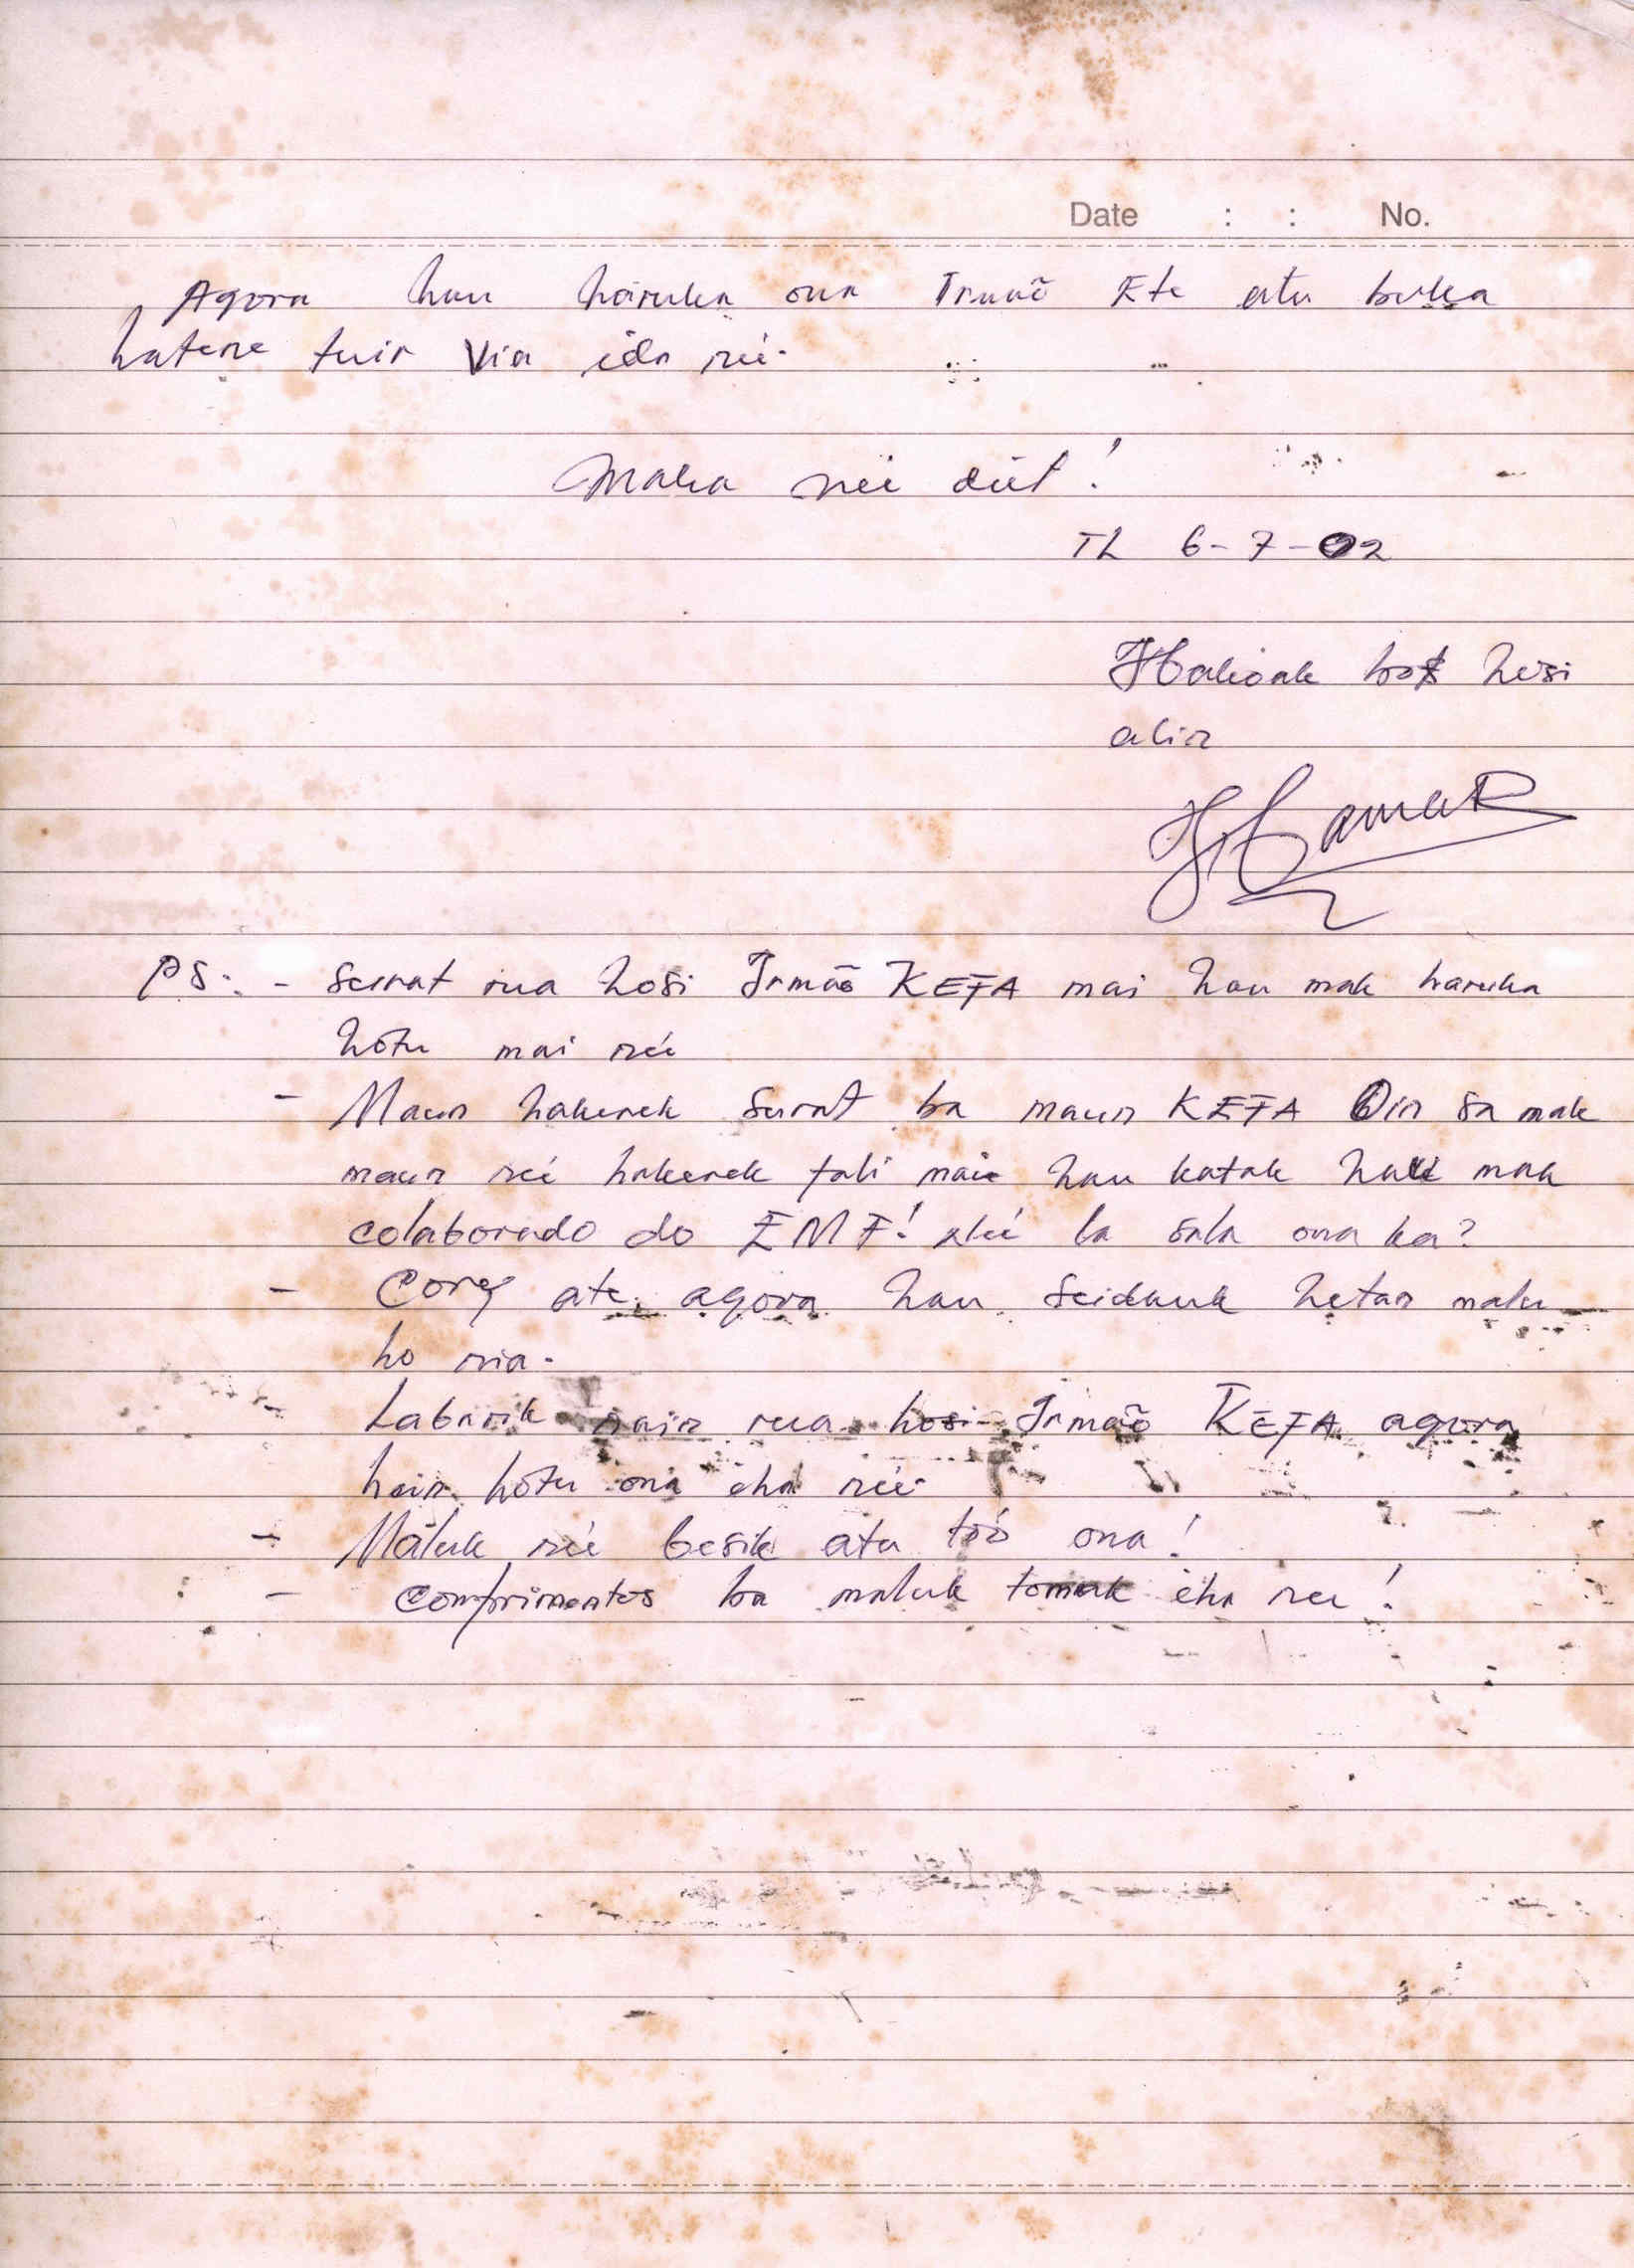 Date : : No.
Agora hau haruka ona Irmaõ Ete atu buka
hatene tuir via ida neé.
Maka neé deit!
TL 6-7-02
Hakoak bot hosi
alin
PS: - Surat rua hosi Irmaõ KEFA mai hau mak haruka
hotu mai neé
- Maun hakerek surat ba maun KEFA sa mak
maun neé hakerek fali mai hau katak hau mak
colaborado do EMF! neé la sala ona ka?
- ate agora hau seidauk hetan malu
ho nia.
- Labarik nain rua hosi Irmaõ KEFA agora
hotu ona iha neé.
- Maluk neé besik atu too ona!
- comprimentos ba maluk tomak iha nee!